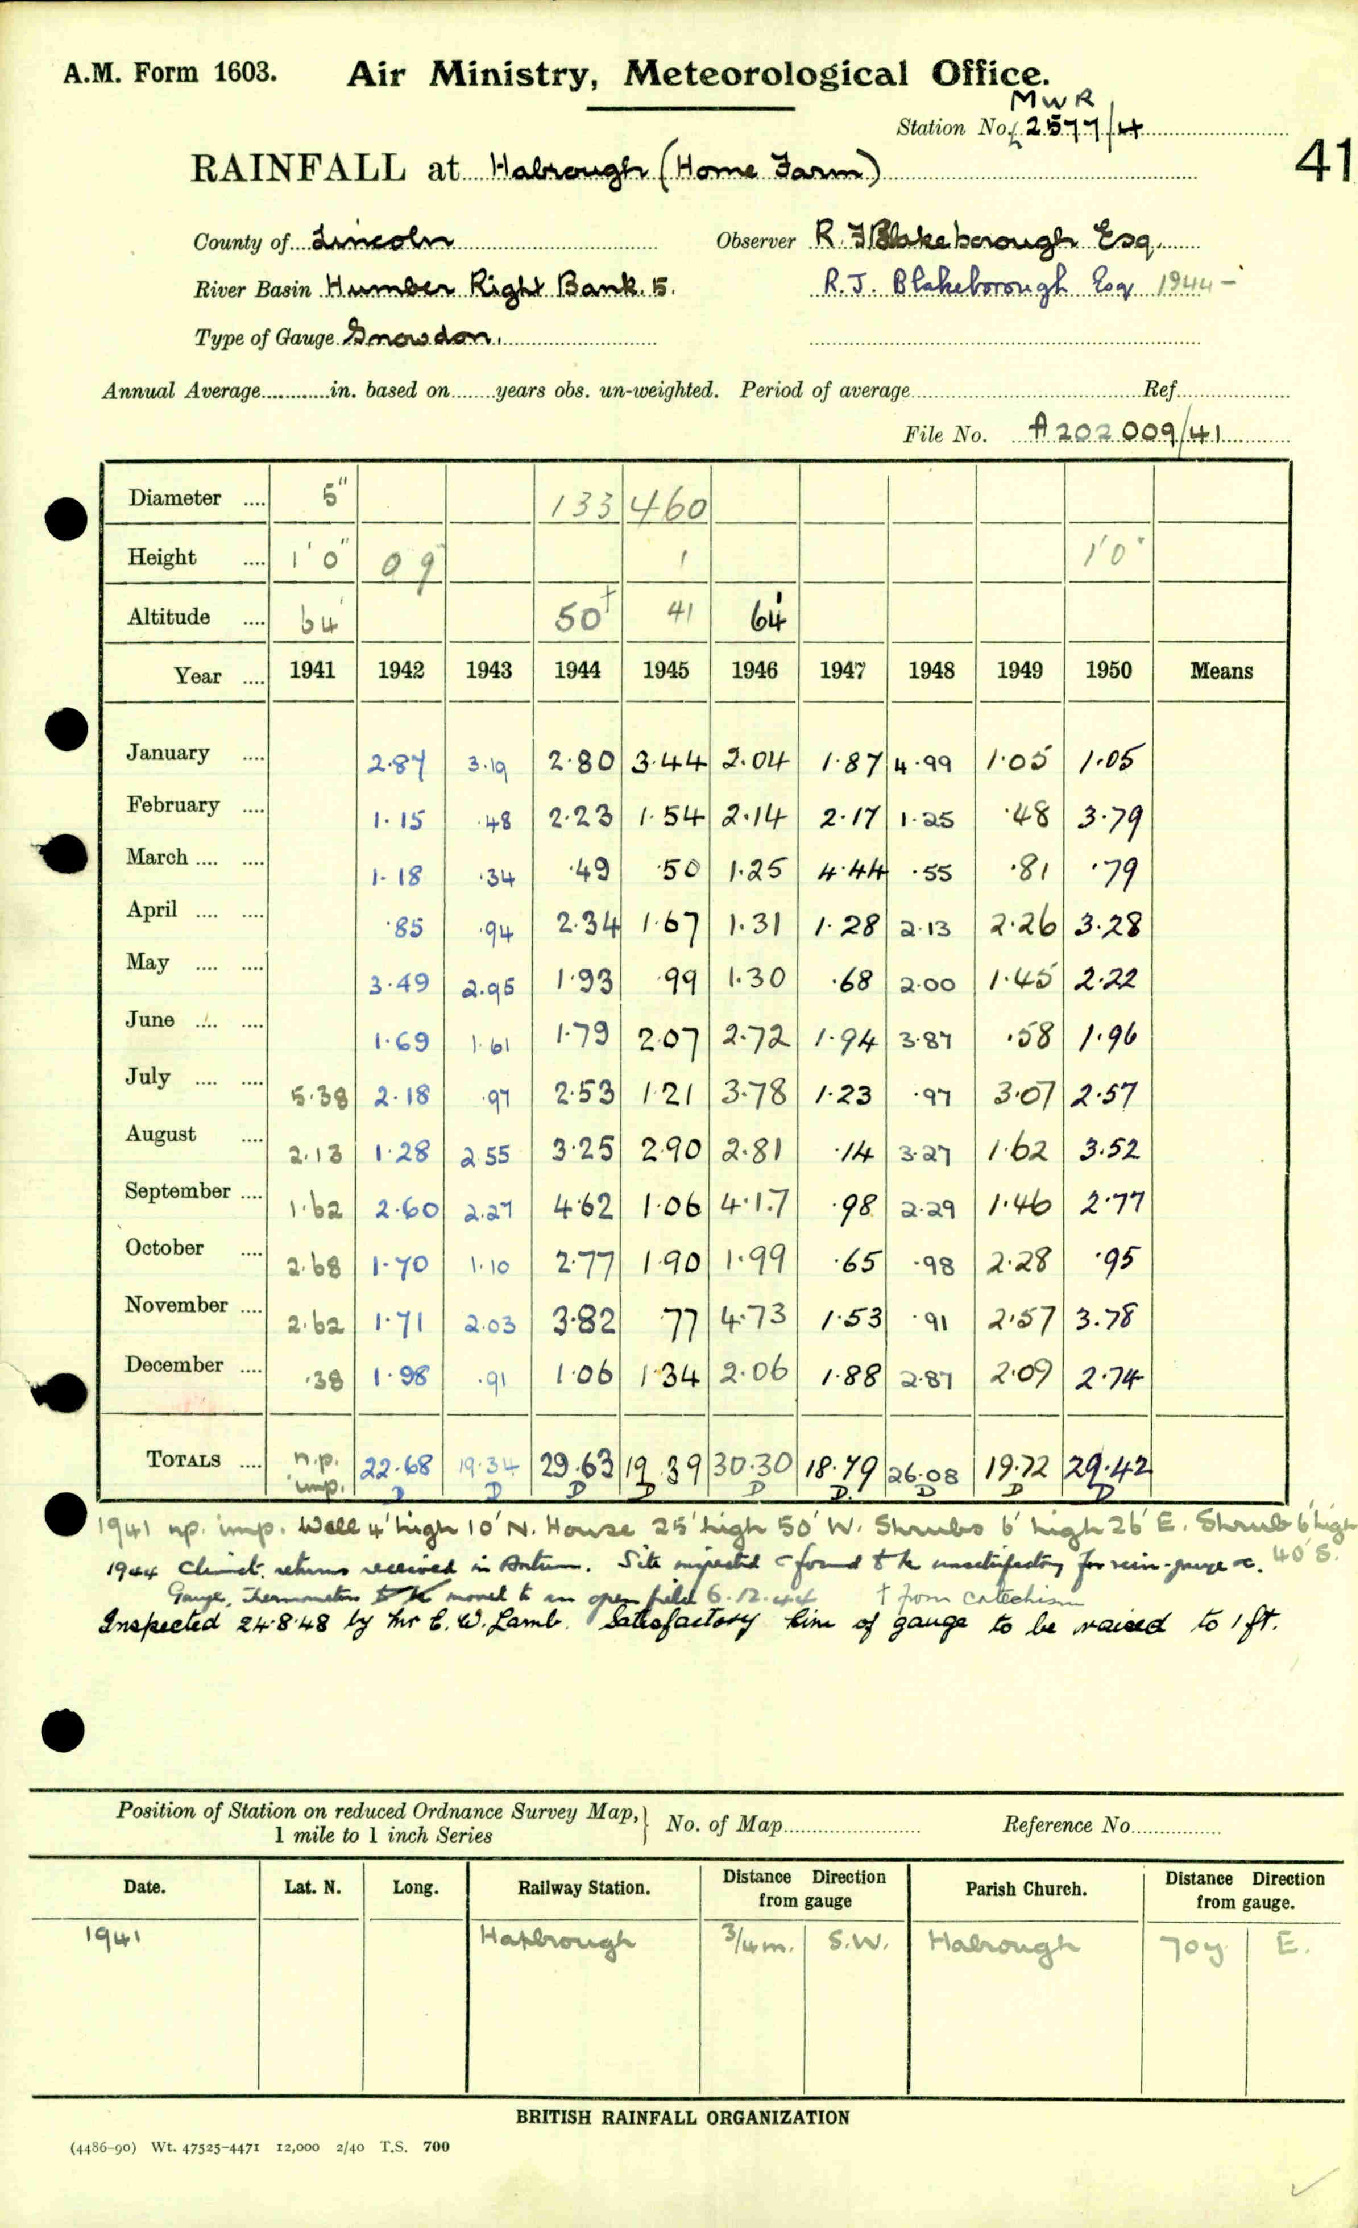 A.M. Form 1603. Air Ministry, Meteorological Office.
MWR
Station No. 2577/4
41
RAINFALL at Habrough (Home Farm)
County of Lincoln Observer R. F Blakeborough Esq.
River Basin Humber Right Bank. 5. R. J. Blakeborough Esq 1944 -
Type of Gauge Snowdon.
Annual Average in. based on years obs. un-weighted. Period of average Ref.
File No. A202009/41
Diameter 5" 133 460
Height 1'0" 09 1 1'0"
Altitude 64' 50† 41 64'
Year 1941 1942 1943 1944 1945 1946 1947 1948 1949 1950 Means
January 2.87 3.19 2.80 3.44 2.04 1.87 4.99 1.05 1.05
February 1.15 .48 2.23 1.54 2.14 2.17 1.25 .48 3.79
March 1.18 .34 .49 .50 1.25 4.44 .55 .81 .79
April .85 .94 2.34 1.67 1.31 1.28 2.13 2.26 3.28
May 3.49 2.95 1.93 .99 1.30 .68 2.00 1.45 2.22
June 1.69 1.61 1.79 2.07 2.72 1.94 3.87 .58 1.96
July 5.38 2.18 .97 2.53 1.21 3.78 1.23 .97 3.07 2.57
August 2.13 1.28 2.55 3.25 2.90 2.81 .14 3.27 1.62 3.52
September 1.62 2.60 2.27 4.62 1.06 4.17 .98 2.29 1.46 2.77
October 2.68 1.70 1.10 2.77 1.90 1.99 .65 .98 2.28 .95
November 2.62 1.71 2.03 3.82 77 4.73 1.53 .91 2.57 3.78
December .38 1.98 .91 1.06 1.34 2.06 1.88 2.87 2.09 2.74
TOTALS n.p. 22.68 19.34 29.63 19.39 30.30 18.79 26.08 19.72 29.42
imp. D D D D D D. D D D
1941 np. imp. Wall 4' high 10' N. House 25' high 50' W. Shrubs 6' high 26' E. Shrub 6' high
40' S.
1944 Climat. returns received in Autumn. Site inspected & found to be unsatisfactory for rain-gauge
Gauge, Thermometers moved to an open field 6.12.44 † from catechism
Inspected 24.8.48 by Mr E. W. Lamb. Satisfactory Rim of gauge to be raised to 1 ft.
Position of Station on reduced Ordnance Survey Map, No. of Map Reference No.
1 mile to 1 inch Series
Date. Lat. N. Long. Railway Station. Distance Direction from gauge Parish Church. Distance Direction from gauge.
1941 Habrough 3/4 m. S.W. Habrough 70y E.
BRITISH RAINFALL ORGANIZATION
(4486-90) Wt. 47525-4471 12,000 2/40 T.S. 700